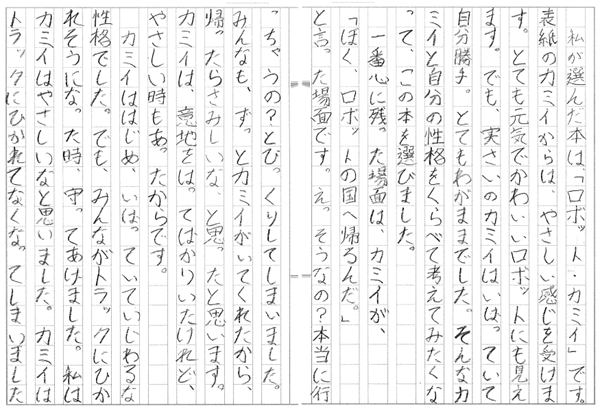 私が選んだ本は「ロボット・カミイ」です。
表紙のカミイからは、やさしい感じを受けま
す。とても元気でかわいいロボットにも見え
ます。でも、実さいのカミイはいばっていて
自分勝手。とてもわがままでした。そんなカ
ミイと自分の性格をくらべて考えてみたくな
って、この本を選びました。
一番心に残った場面は、カミイが、
「ぼく、ロボットの国へ帰るんだ。」
と言った場面です。えっそうなの？本当に行
っちゃうの？とびっくりしてしまいました。
みんなも、ずっとカミイがいてくれたから、
帰ったらさみしいな、と思ったと思います。
カミイは、意地をはってばかりいたけれど、
やさしい時もあったからです。
カミイははじめ、いばっていていじわるな
性格でした。でも、みんながトラックにひか
れそうになった時、守ってあげました。私は
カミイはやさしいなと思いました。カミイは
トラックにひかれてなくなってしまいました